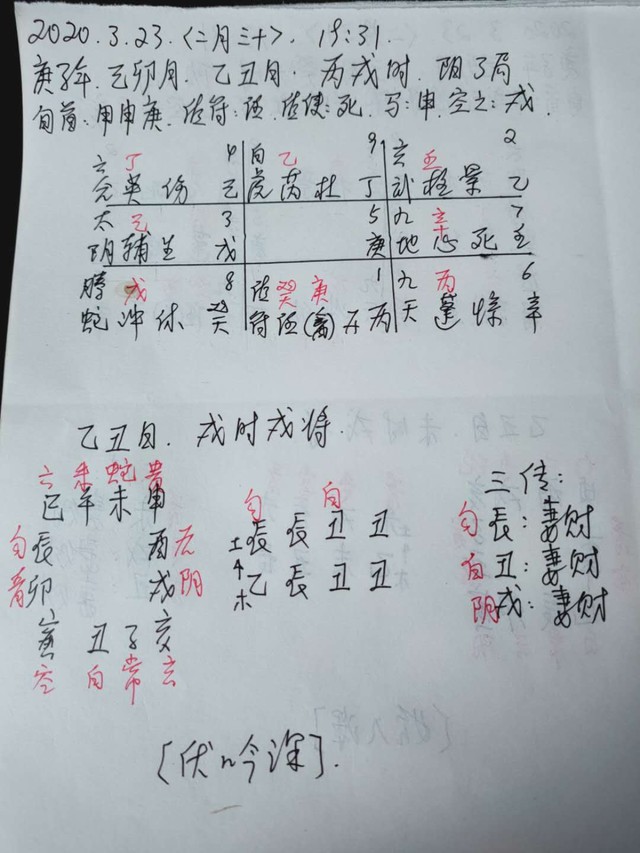 2020.3.23.<二月三十>. 19:31.
庚子年.己卯月.乙丑日.丙戌时.阴3局
旬首:甲申庚.值符:任.值使:死.马:申.空亡:戌.
六 丁 4 白 乙 9 玄 壬 2
英 伤 己 虎 芮 杜 丁 武 柱 景 乙
太 己 3 5 九 辛 7
阴 辅 生 戊 庚 地 心 死 壬
螣 戊 8 值 癸 庚 1 九 丙 6
蛇 冲 休 癸 符 任(禽)开 丙 天 蓬 惊 辛
乙丑日.戌时戌将.
六 朱 蛇 贵
巳 午 未 申
勾辰 酉后
青卯 戌阴
寅 丑 子 亥
空 白 常 玄
勾 白
土 辰 辰 丑 丑
↑
木 乙 辰 丑 丑
三传:
勾辰:妻财
白丑:妻财
阴戌:妻财